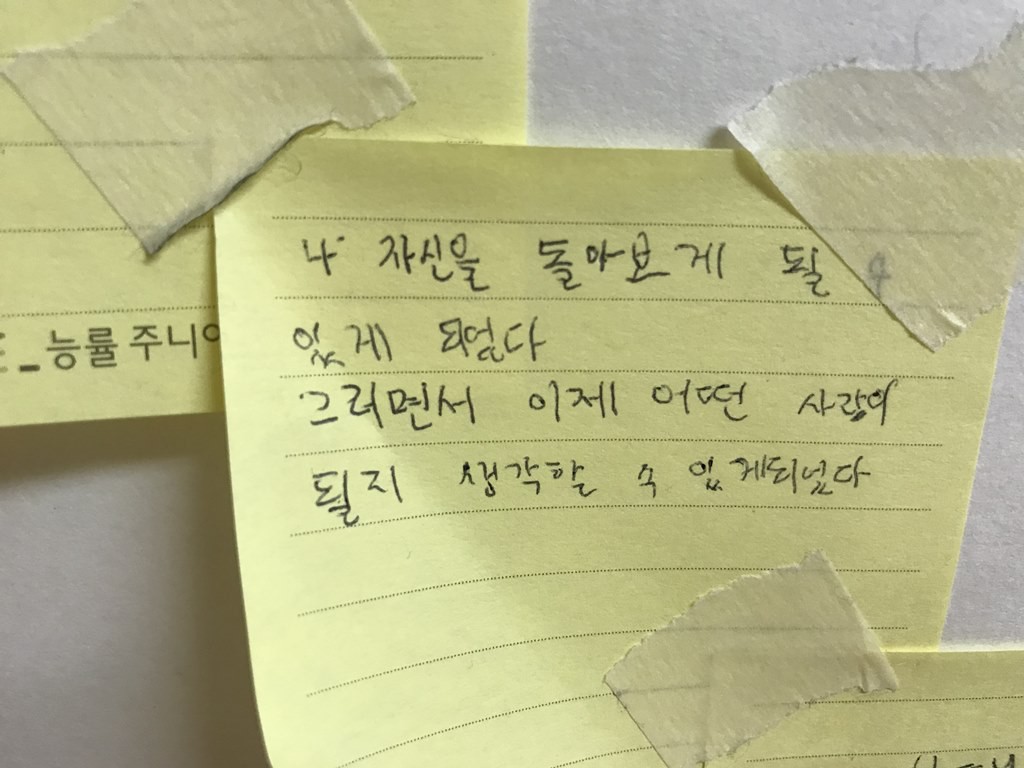 나 자신을 돌아보게 될 수
있게 되었다
그러면서 이제 어떤 사람이
될지 생각할 수 있게되었다
능률 주니어